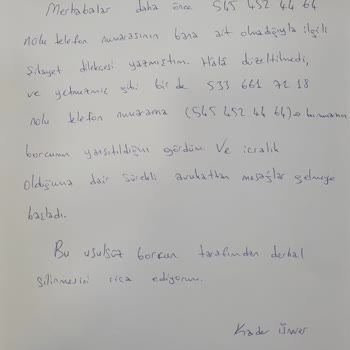 Merhabalar daha önce 545 452 44 64
nolu telefon numarasının bana ait olmadığıyla ilgili
şikayet dilekçesi yazmıştım. Hala düzeltilmedi,
ve yetmezmiş gibi bir de 533 661 72 18
nolu telefon numarama (545 452 44 64)
borcunun yansıtıldığını gördüm. Ve icralık
olduğuna dair sürekli avukattan mesajlar gelmeye
başladı.
Bu usulsüz borcun tarafımdan derhal
silinmesini rica ediyorum.
Kader